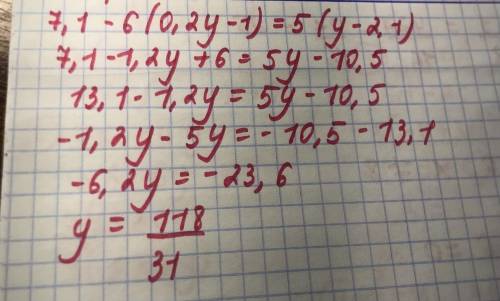 7,1 - 6(0,2y-1) = 5(y-2,1)
7,1-1,2y+6 = 5y-10,5
13,1-1,2y = 5y-10,5
-1,2y-5y = -10,5-13,1
-6,2y = -23,6
y = 118/31